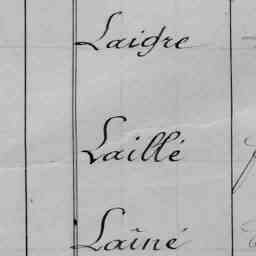 Laigre
Laillé
Laîné